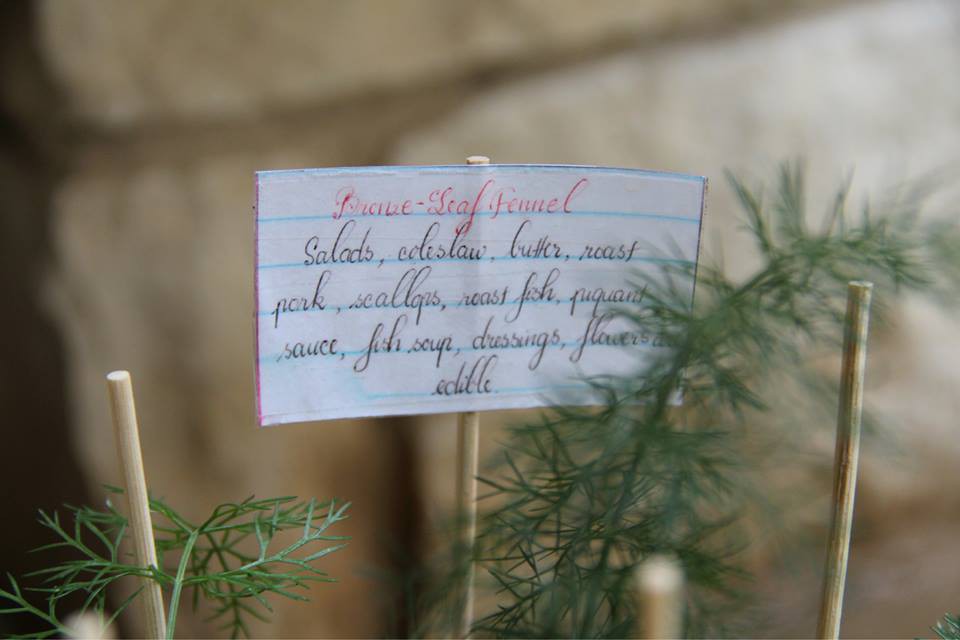 Bronze-Leaf Fennel
Salads, coleslaw, butter, roast
pork, scallops, roast fish, piquant
sauce, fish soup, dressings, flowers
edible.